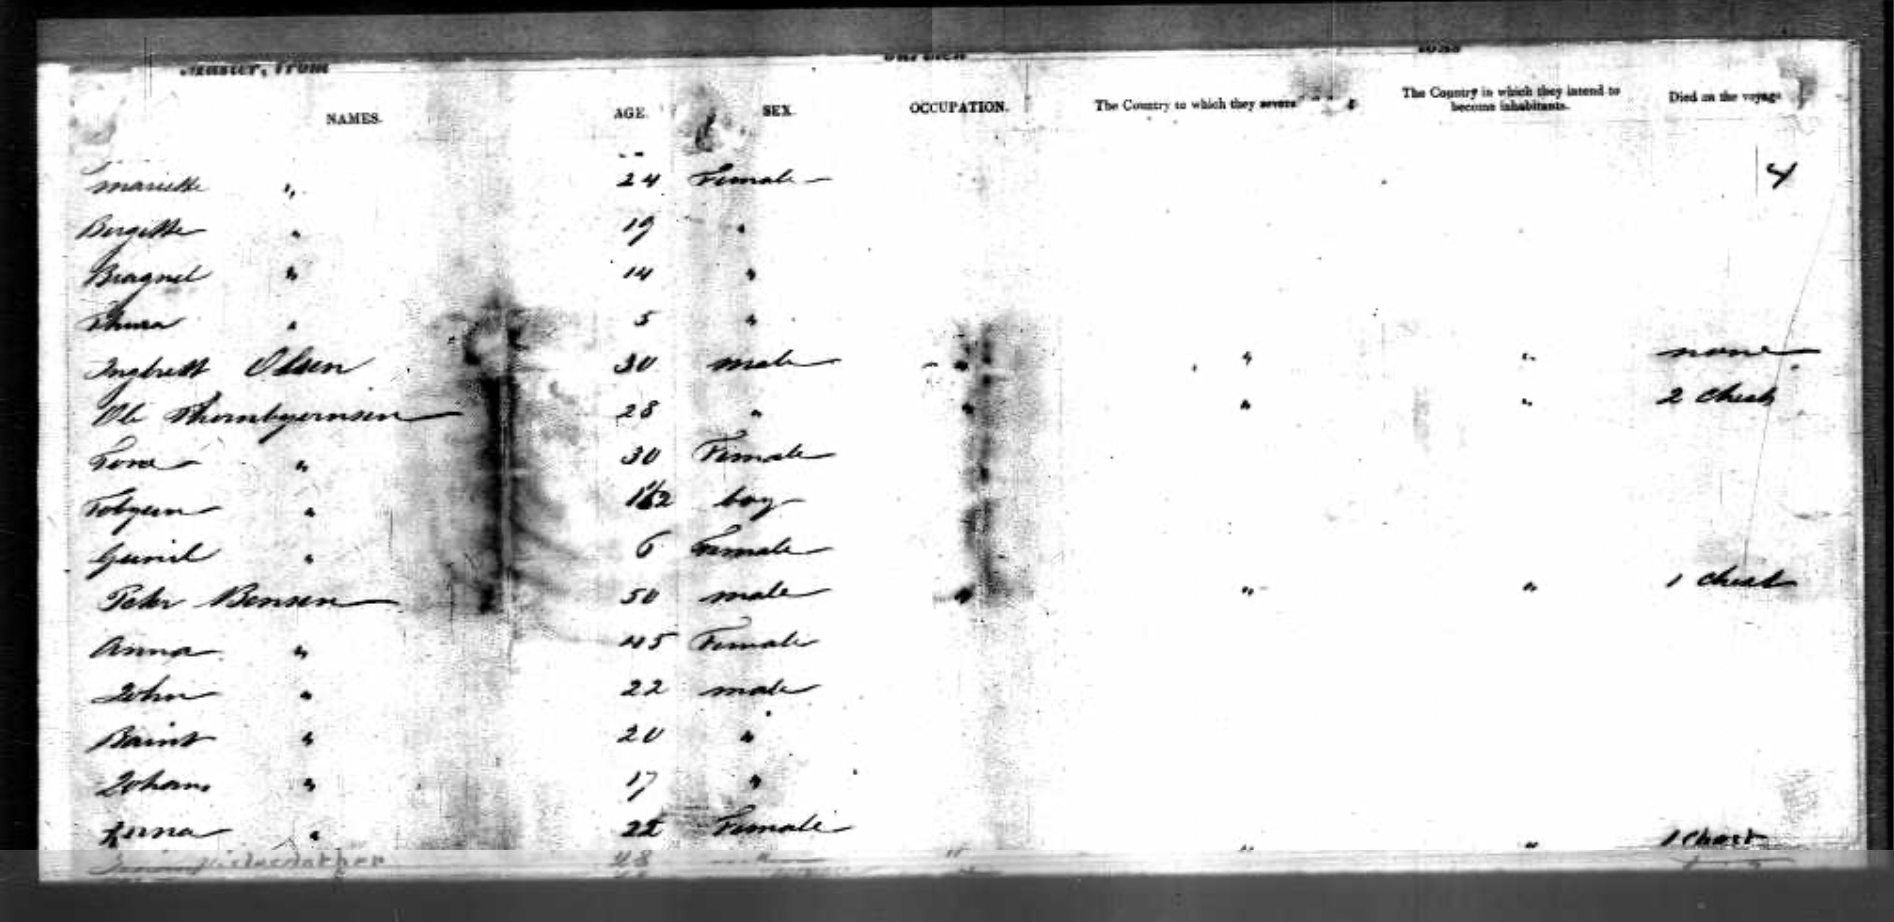 Master, from Burden tons
NAMES. AGE. SEX. OCCUPATION. The Country to which they severa The Country in which they intend to become inhabitants. Died on the voyage
4
Mariette " 24 Female
Bergitte " 19 "
Bragnel " 14 "
Thura " 5 "
Ingbrett Olsen 30 male " " " none
Ole Thornbyernsen 28 " " " " 2 Chests
Tone " 30 Female
" 1 1/2 boy
Gunil " 6 Female
Peter Bensen 50 male " " " 1 chest
Anna " 45 Female
John " 22 male
Baint " 20 "
Johans " 17 "
Anna " 22 Female
48 " " " " 1 Chest